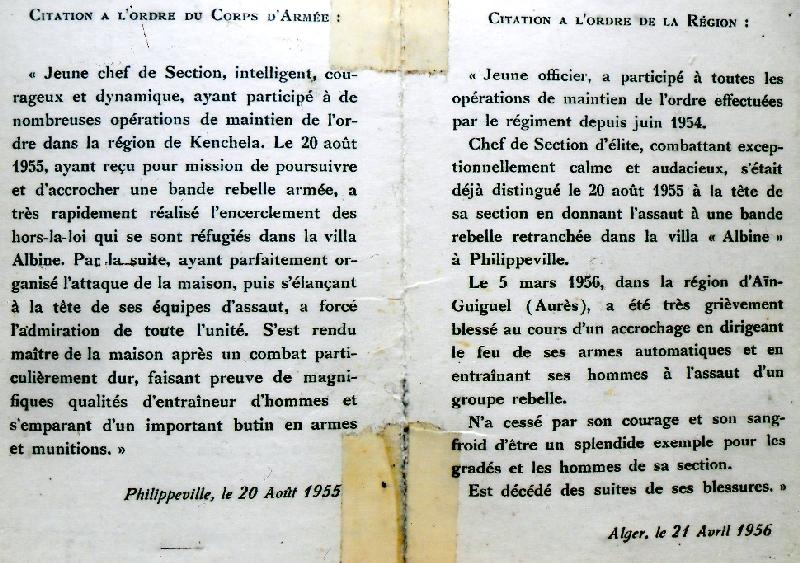 CITATION A L'ORDRE DU CORPS D'ARMÉE :
« Jeune chef de Section, intelligent, cou-
rageux et dynamique, ayant participé à de
nombreuses opérations de maintien de l'or-
dre dans la région de Kenchela. Le 20 août
1955, ayant reçu pour mission de poursuivre
et d'accrocher une bande rebelle armée, a
très rapidement réalisé l'encerclement des
hors-la-loi qui se sont réfugiés dans la villa
Albine. Par la suite, ayant parfaitement or-
ganisé l'attaque de la maison, puis s'élançant
à la tête de ses équipes d'assaut, a forcé
l'admiration de toute l'unité. S'est rendu
maître de la maison après un combat parti-
culièrement dur, faisant preuve de magni-
fiques qualités d'entraîneur d'hommes et
s'emparant d'un important butin en armes
et munitions. »
Philippeville, le 20 Août 1955
CITATION A L'ORDRE DE LA RÉGION :
« Jeune officier, a participé à toutes les
opérations de maintien de l'ordre effectuées
par le régiment depuis juin 1954.
Chef de Section d'élite, combattant excep-
tionnellement calme et audacieux, s'était
déjà distingué le 20 août 1955 à la tête de
sa section en donnant l'assaut à une bande
rebelle retranchée dans la villa « Albine »
à Philippeville.
Le 5 mars 1956, dans la région d'Aïn-
Guiguel (Aurès), a été très grièvement
blessé au cours d'un accrochage en dirigeant
le feu de ses armes automatiques et en
entraînant ses hommes à l'assaut d'un
groupe rebelle.
N'a cessé par son courage et son sang-
froid d'être un splendide exemple pour les
gradés et les hommes de sa section.
Est décédé des suites de ses blessures. »
Alger, le 21 Avril 1956